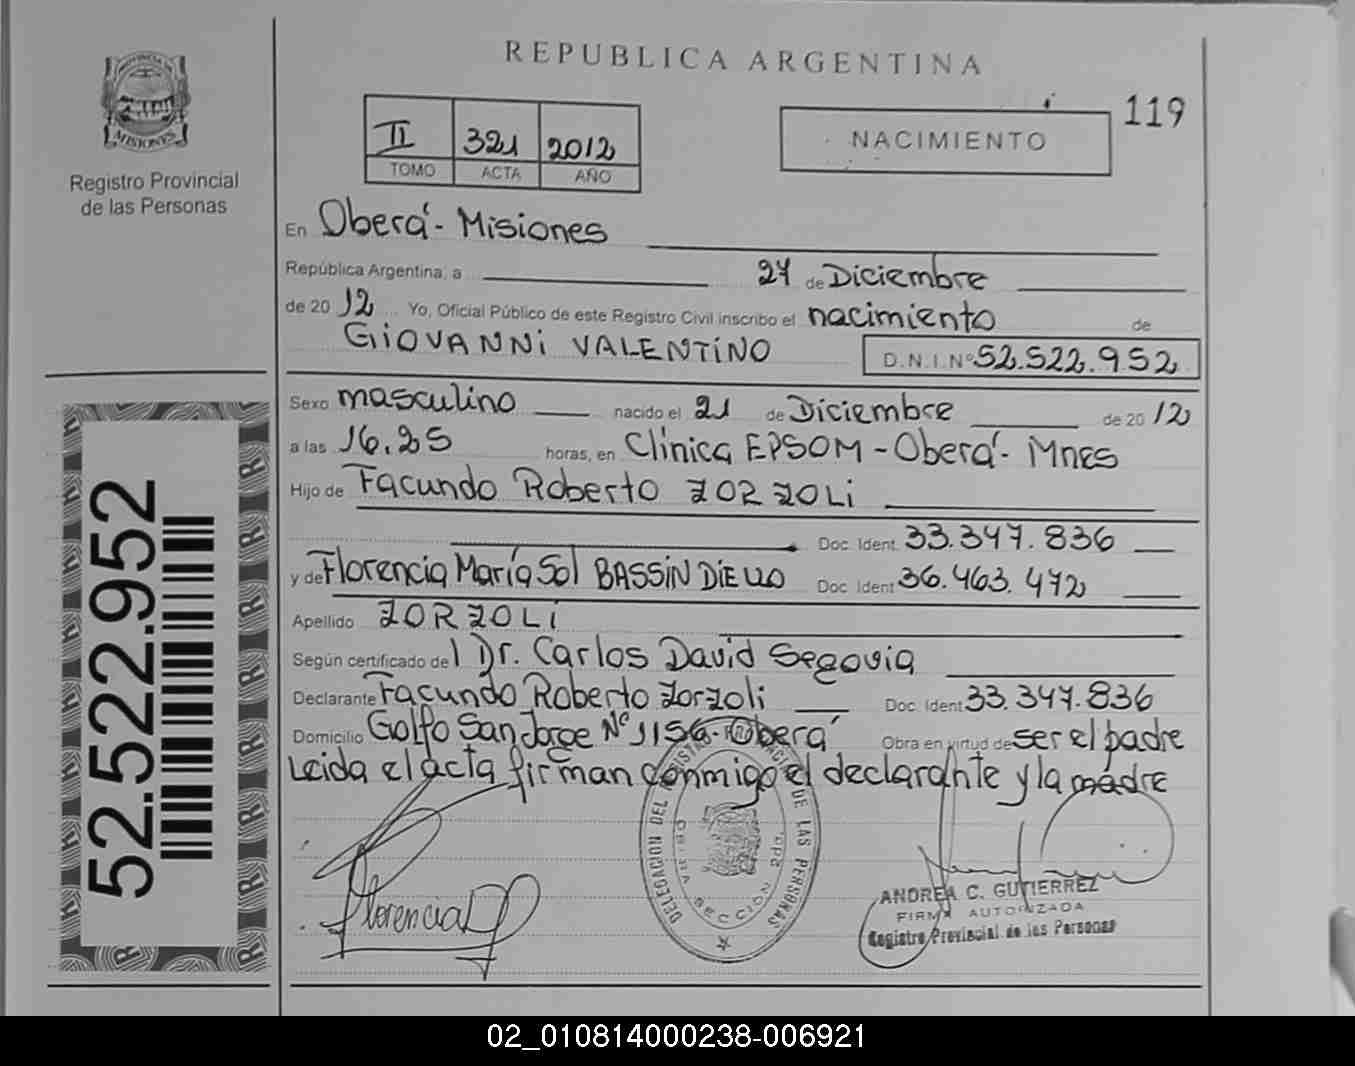 REPUBLICA ARGENTINA
PROVINCIA DE MISIONES
Registro Provincial
de las Personas
II 321 2012
TOMO ACTA AÑO
NACIMIENTO
119
En Oberá - Misiones
República Argentina, a 27 de Diciembre
de 20 12 Yo, Oficial Público de este Registro Civil inscribo el nacimiento de
GIOVANNI VALENTINO D.N.I. Nº 52.522.952
Sexo masculino nacido el 21 de Diciembre de 20 12
a las 16.25 horas, en Clínica EPSOM - Oberá - Mnes
Hijo de Facundo Roberto ZORZOLI
Doc. Ident. 33.347.836
y de Florencia María Sol BASSIN DIELLO Doc. Ident. 36.463.472
Apellido ZORZOLI
Según certificado del Dr. Carlos David Segovia
Declarante Facundo Roberto Zorzoli Doc. Ident. 33.347.836
Domicilio Golfo San Jorge Nº 1156 - Oberá Obra en virtud de ser el padre
Leida el acta firman conmigo el declarante y la madre
Florencia
DELEGACION DEL REGISTRO PROVINCIAL DE LAS PERSONAS
SECCION
ANDREA C. GUTIERREZ
FIRMA AUTORIZADA
Registro Provincial de las Personas
52.522.952
02_010814000238-006921